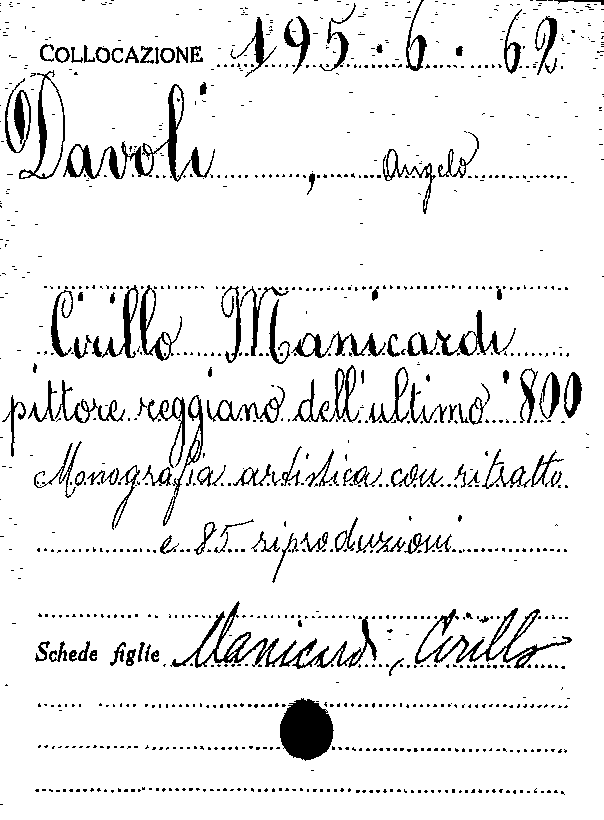 COLLOCAZIONE 195.6.62
Davoli, Angelo
Cirillo Manicardi
pittore reggiano dell'ultimo '800
Monografia artistica con ritratto
e 85 riproduzioni
Schede figlie Manicardi, Cirillo